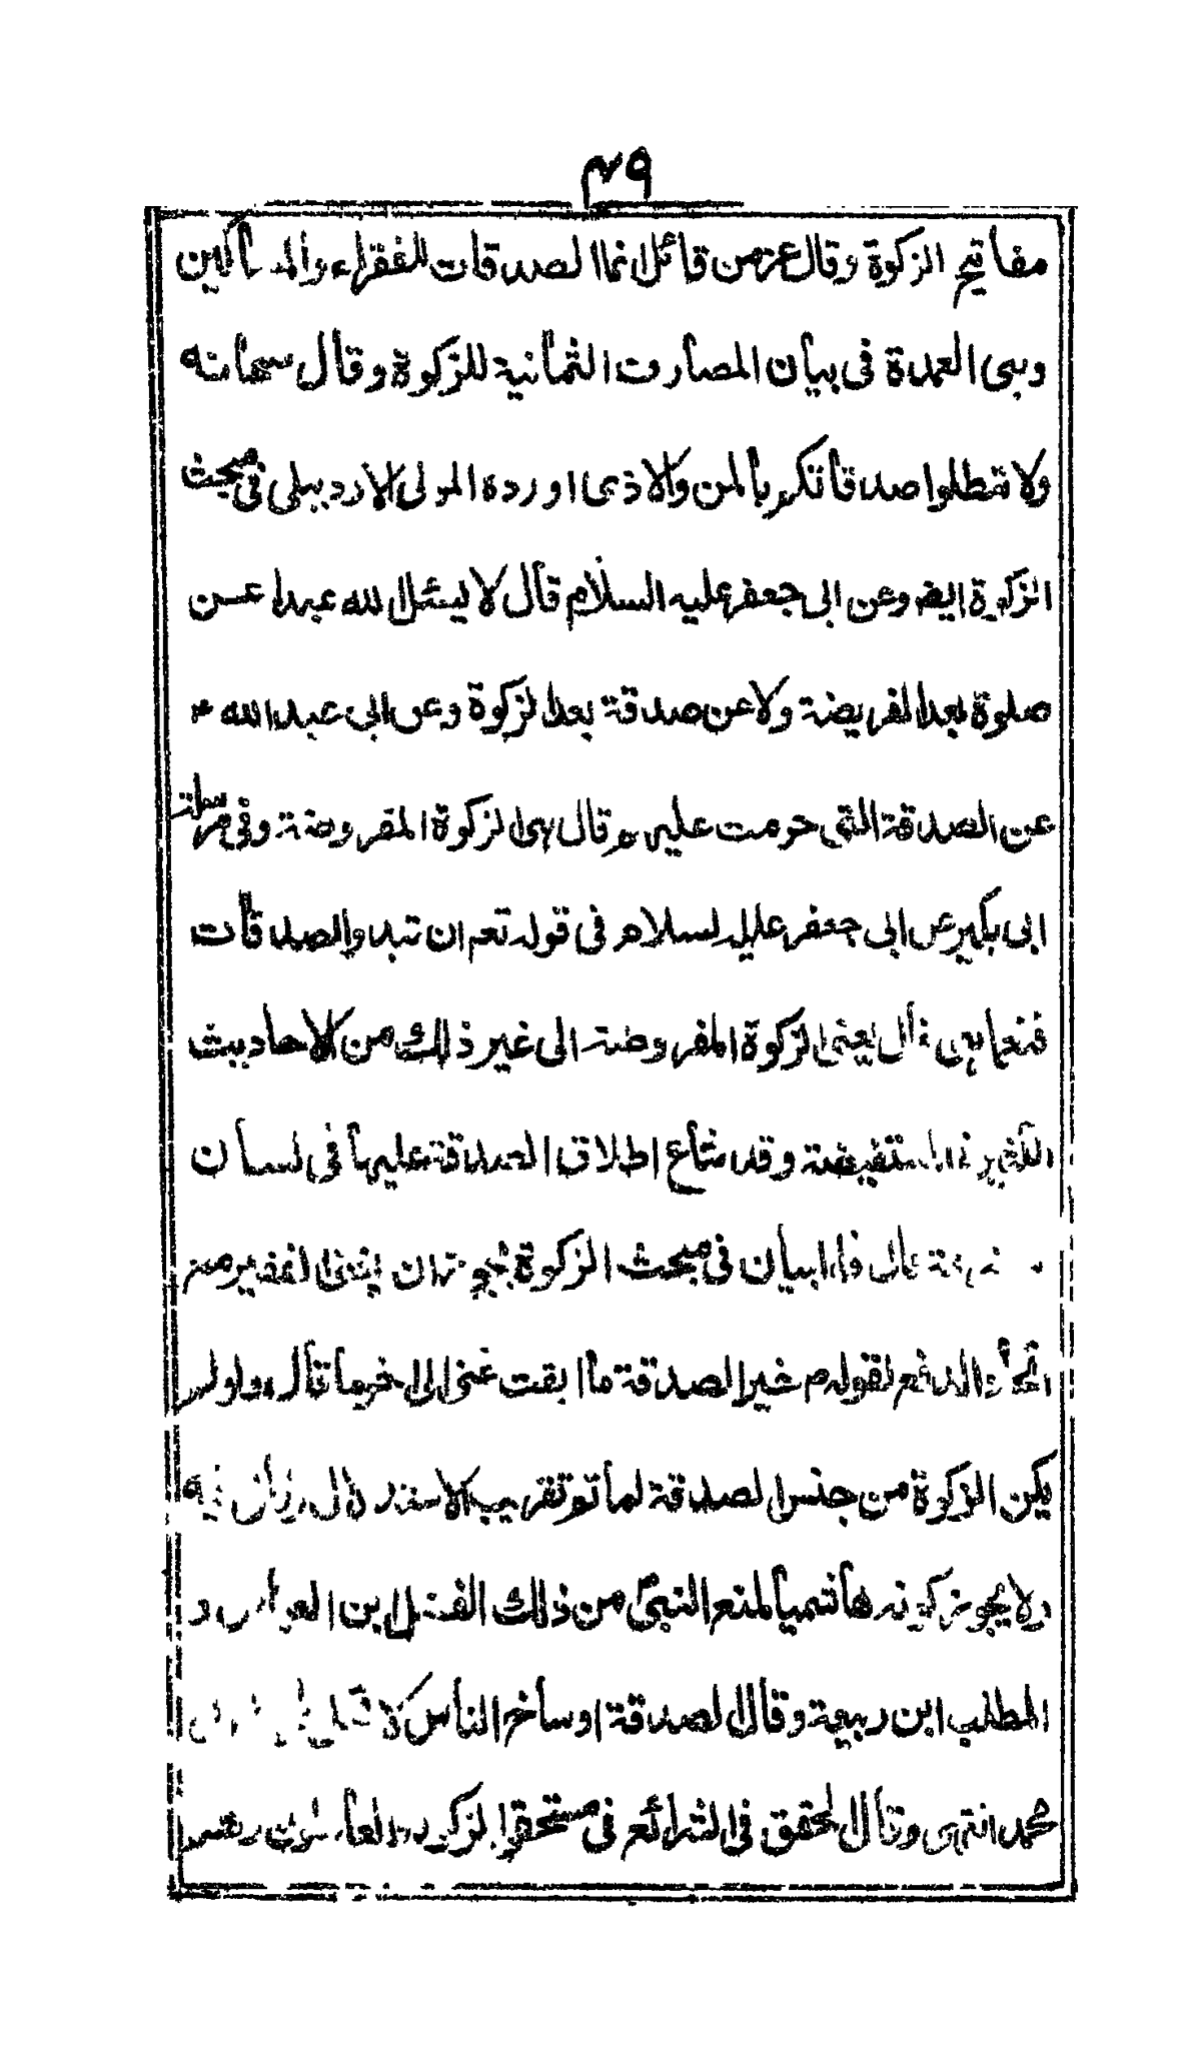 ۴۹
مفاتيح الزكوة وقال عز من قائل انما الصدقات للفقراء والمساكين
وهى العمدة فى بيان المصارف الثمانية للزكوة وقال سبحانه
ولا تبطلوا صدقاتكم بالمن والاذى اورده المولى الاردبيلى فى مبحث
الزكوة ايضا وعن ابى جعفر عليه السلام قال لا يسئل الله عبدا عن
صلوة بعد الفريضة ولا عن صدقة بعد الزكوة وعن ابى عبد الله ع
عن الصدقة التى حرمت عليهم قال هى الزكوة المفروضة وفى مرسلة
ابى بكير عن ابى جعفر عليه السلام فى قوله تعم ان تبدوا الصدقات
فنعما هى قال يعنى الزكوة المفروضة الى غير ذلك من الاحاديث
الكثيرة المستفيضة وقد شاع اطلاق الصدقة عليها فى لسان
قال فى البيان فى مبحث الزكوة يجوز ان يغنى الفقير من
الدفع لقوله م خير الصدقة ما ابقت غنى الى اخر ما قال ولو لم
يكن الزكوة من جنس الصدقة لما تم تقريب الاستدلال فيه
ولا يجوز كونه هاشميا لمنع النبى ص من ذلك الفضل بن العباس و
المطلب ابن ربيعة وقال الصدقة اوساخ الناس لا تحل
محمد انتهى وقال المحقق فى الشرائع فى مستحق الزكوة والعاملون